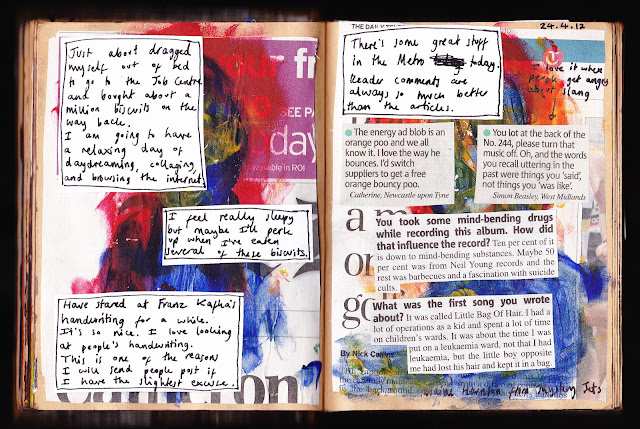 Just about dragged
myself out of bed
to go to the Job Centre
and bought about a
million biscuits on the
way back.
I am going to have
a relaxing day of
daydreaming, collaging,
and browsing the internet.
our fr
SEE PA
day
available in ROI
I feel really sleepy
but maybe I'll perk
up when I've eaten
several of these biscuits.
Have stared at Franz Kafka's
handwriting for a while.
It's so nice. I love looking
at people's handwriting.
This is one of the reasons
I will send people post if
I have the slightest excuse.
Cameron
THE DAILY
24.4.12
There's some great stuff
in the Metro today.
Reader comments are
always so much better
than the articles.
- love it where
people get angry
about slang
The energy ad blob is an
orange poo and we all
know it. I love the way he
bounces. I'd switch
suppliers to get a free
orange bouncy poo.
Catherine, Newcastle upon Tyne
You lot at the back of the
No. 244, please turn that
music off. Oh, and the words
you recall uttering in the
past were things you 'said',
not things you 'was like'.
Simon Beasley, West Midlands
You took some mind-bending drugs
while recording this album. How did
that influence the record? Ten per cent of it
is down to mind-bending substances. Maybe 50
per cent was from Neil Young records and the
rest was barbecues and a fascination with suicide
cults.
What was the first song you wrote
about? It was called Little Bag Of Hair. I had a
lot of operations as a kid and spent a lot of time
on children's wards. It was about the time I was
put on a leukaemia ward, not that I had
leukaemia, but the little boy opposite
me had lost his hair and kept it in a bag.
By Nick Co
from Mystery Jets